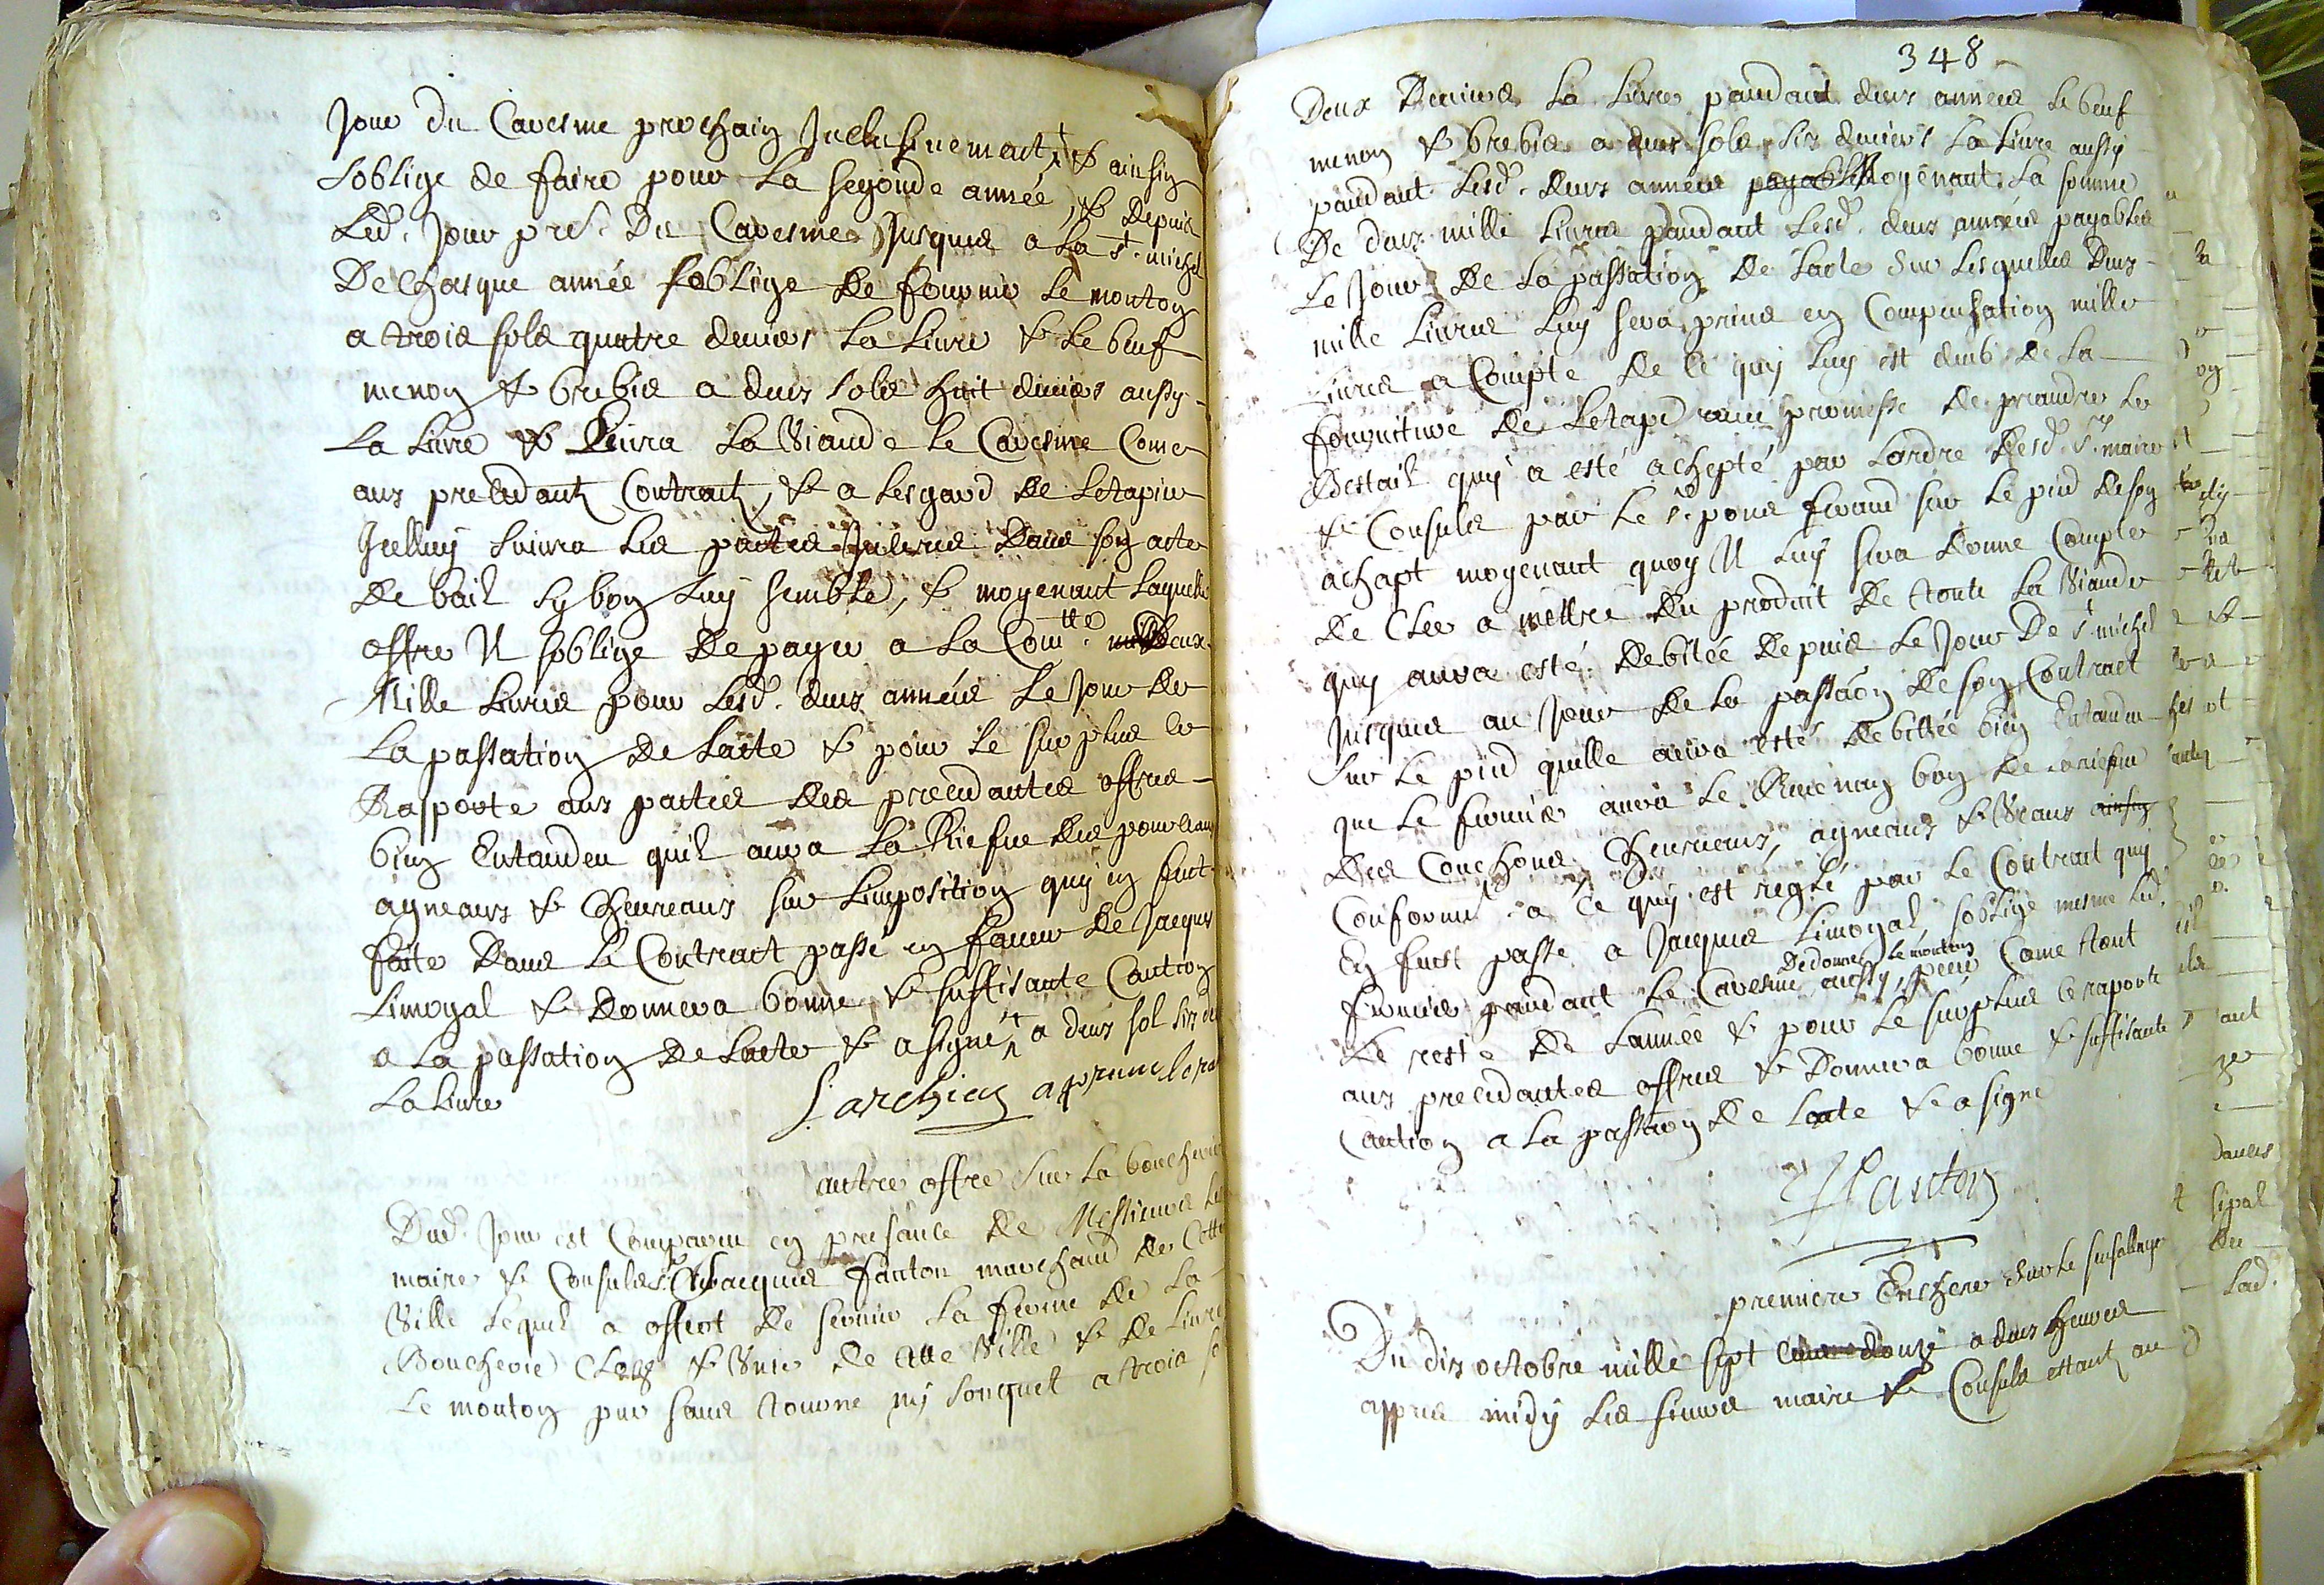 Jour du Caresme prochain Jnclusivement, & ainsin
soblige de faire pour La segonde année, & Depuis
Led. Jour pre.t Du Caresme Jusques a La st. michel
De chasque année soblige de fournir Le mouton
a trois solz quatre deniers La Livre & Le beuf
menon & brebis a deus solz huit deniers aussy
La Livre & Livra La Viande Le Caresme Come
aus precedantz Contractz, & a Lesgard De Letapier
Jcelluy suivra Les pactes Jnserés Dans son acte
De bail sy bon Luy semble, & moyenant Laquelle
offre Il soblige De payer a La Com.tte Deux
Mille Livres pour Lesd. deus années Le Jour De
La passation De Lacte & pour Le surplus ce
Rapporte aus pacties des precedantes offres
bien Entandeu quil aura La Riefve Des pourceaux
agneaus & Chevreaus sur Limposition quy en fut
faite Dans Le Contract passé en faveur De Jacques
Limogal & Donnera bonne & suffisante Caution
a La passation De Lacte & a signé a deus sol sis de
La Livre
Larchier approuve
autre offre sur La boucherie
Dud. Jour est Comparu en presance de Messieurs Les
maire & Consulz Jacques fanton marchand De Cette
Ville Lequel a offert De servir La ferme De La
Boucherie Cloze & Unie De Cette Ville & De Livrer
Le mouton pur sans tourne ny souquet a trois
348
Deux Deniers La Livre pandant deus années Le beuf
menon & brebis a deus solz sis deniers La Livre aussy
pandant Lesd. deus années payables moyenant La somme
De deus mille Livres pandant Lesd. deus années payables
Le Jour De La passation De Lacte sur Lesquelles Deus
mille Livres Luy sera prins en Compensation mille
Livres a Compte de ce quy Luy est deub de La
fourniture De Letape avec promesse De prandre Le
Bestail quy a esté achepté par Lordre Desd. srs. maire
& Consulz par Le sr. pons ferand sur Le pied De son
achapt moyenant quoy Il Luy sera Donné Compte
De Clerc a mettre Du produit De toute La Viande
quy aura esté Debitée Depuis Le Jour De st. michel
Jusques au Jour De La passaon De son Contract
sur Le pied quelle aura esté Debittée bien Entandu
que Le fermier aura Le
Des Couchons, Chevreaus, agneaus & Veaus ainsin
Conformt. a ce quy est reglé par Le Contract quy
En fust passé a Jacques Limogal soblige mesme Led.
De donner Le mouton
fermier pandant Le Caresme aussy, pur Come tout
Le reste De Lannée & pour Le surplus ce raporte
aus precedantes offres & Donnera bonne & suffisante
Caution a La passaon De Lacte & a signé
Fanton
premiere Enchere sur Le
Du dix octobre mille sept cens douze a deus heures
appres midy Les sieurs maire & Consulz estant au